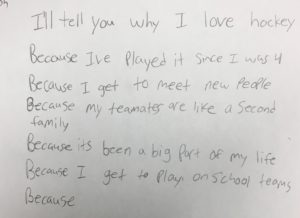 I'll tell you why I love hockey
Because Ive Played it Since I was 4
Because I get to meet new People
Because my teamates are like a Second
family
Because its been a big Part of my life
Because I get to Play on School teams
Because